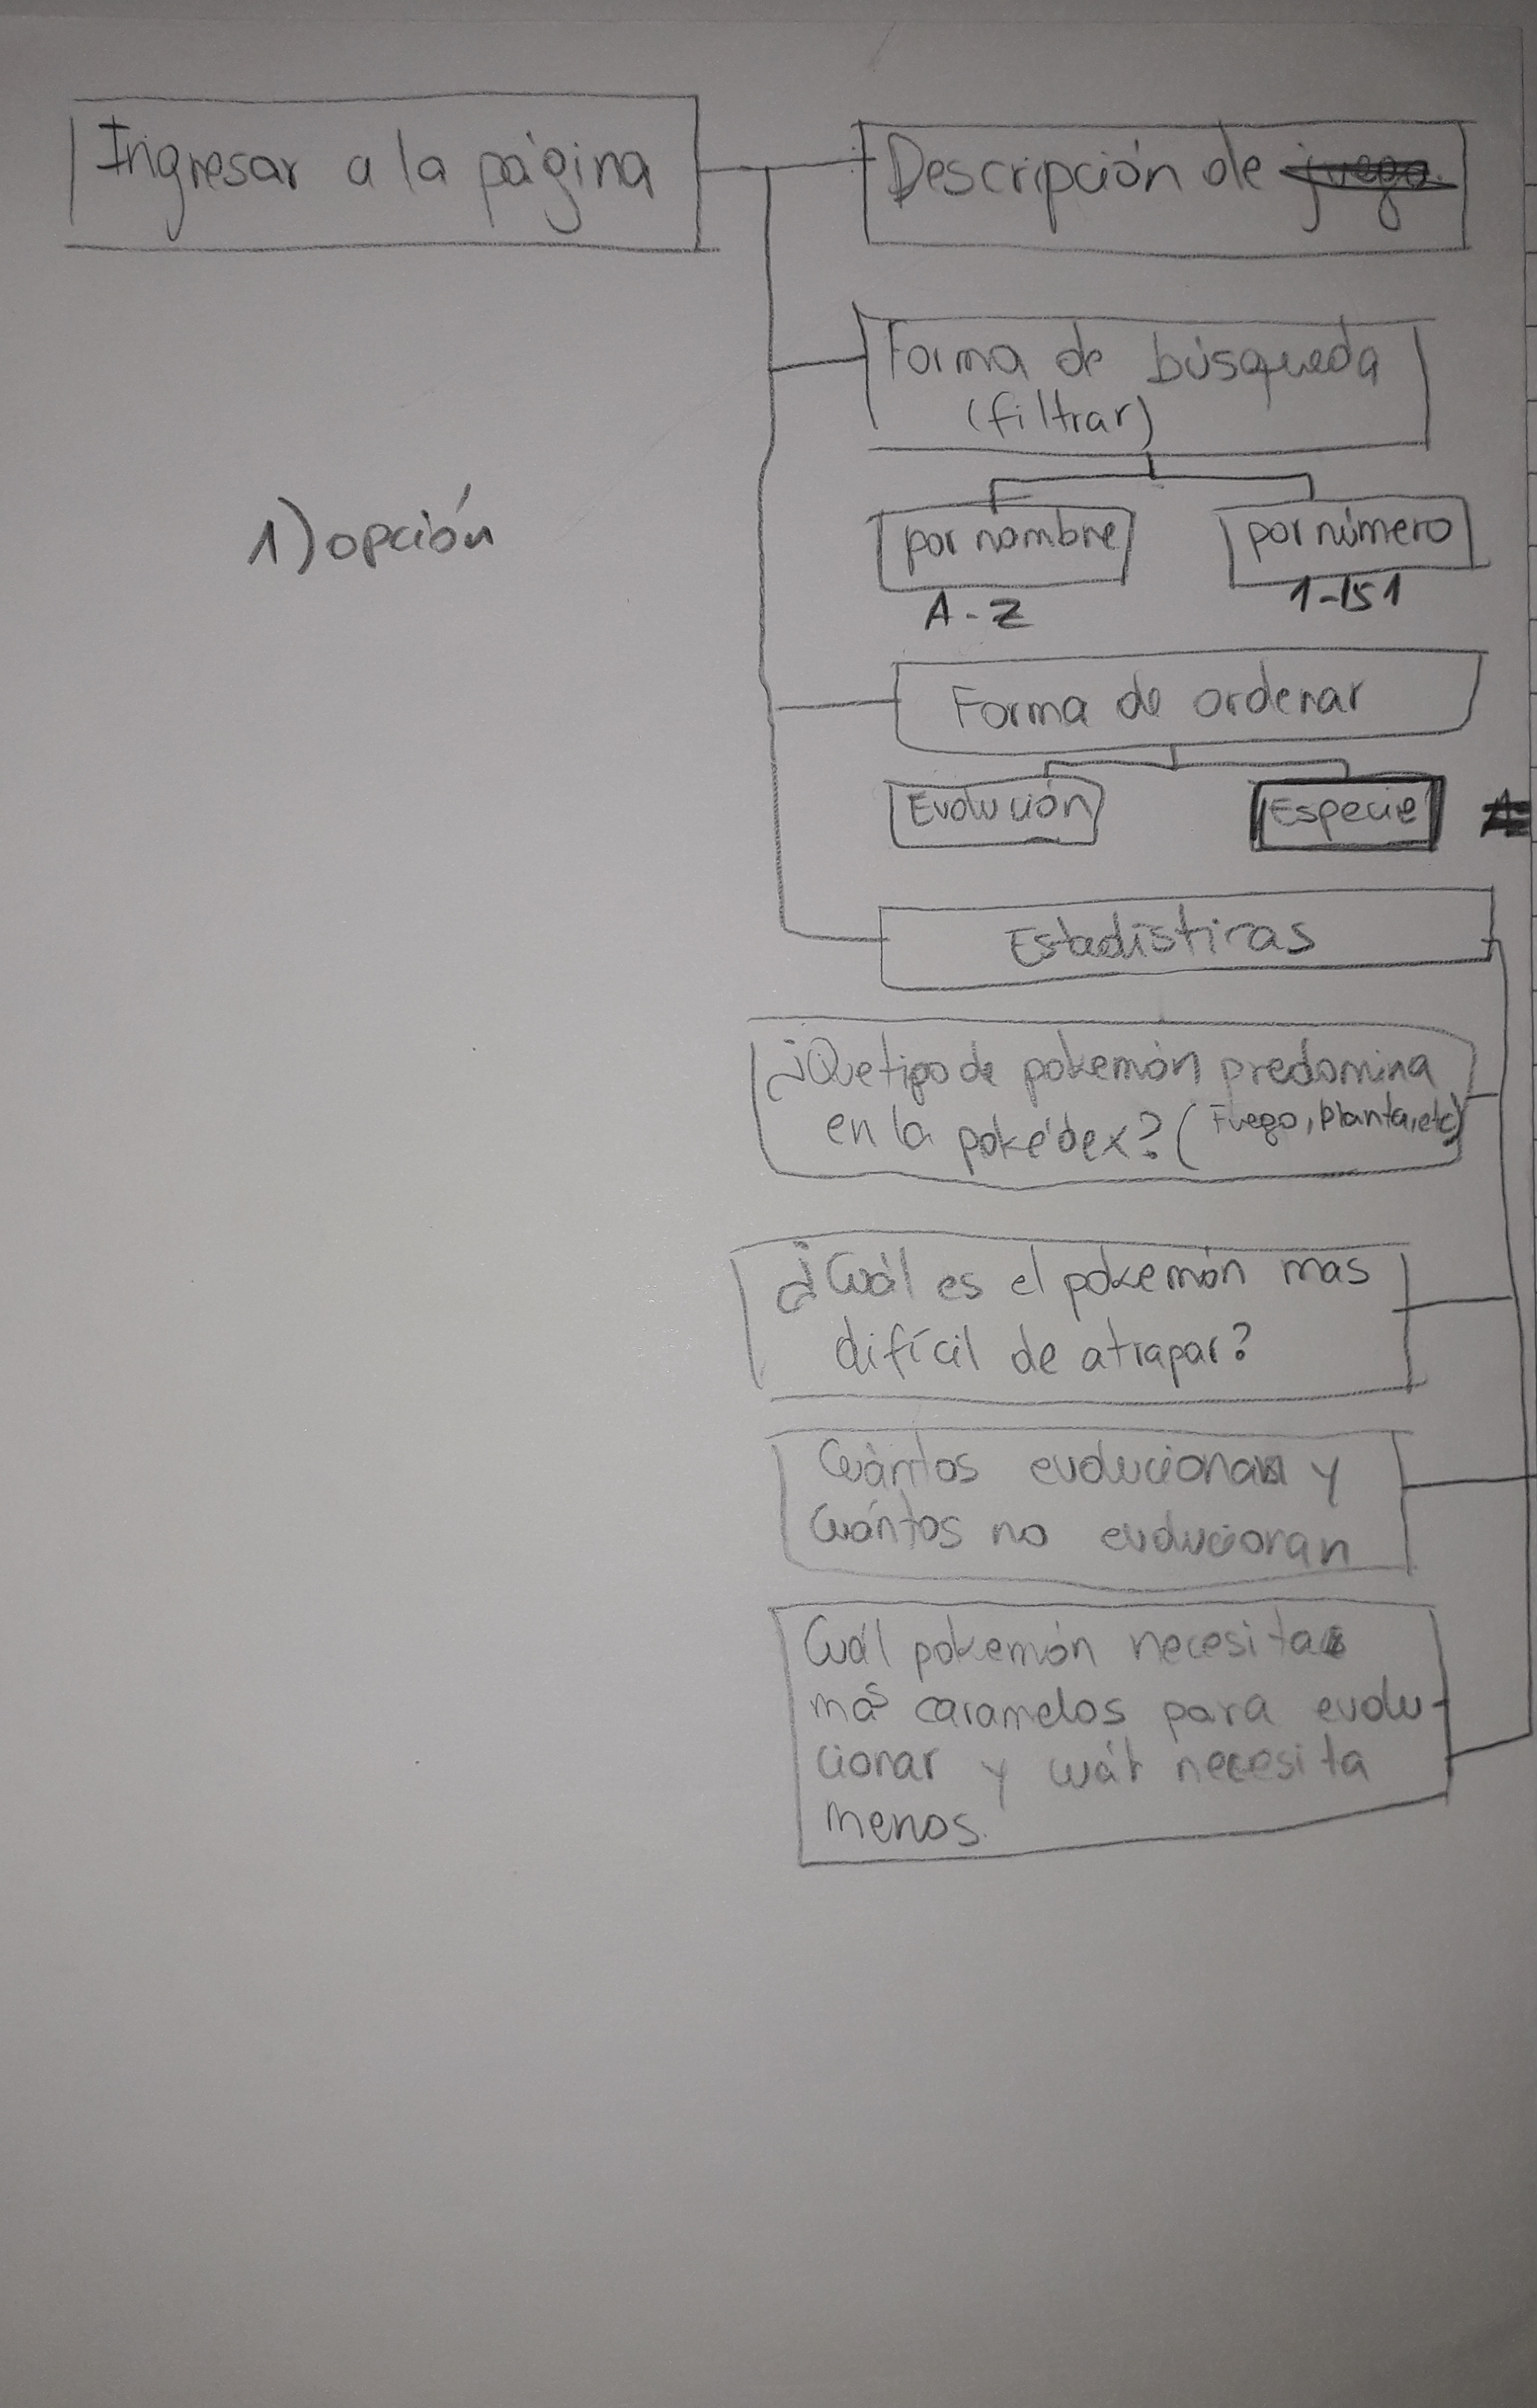 Ingresar a la página
Descripción de juego.
Forma de búsqueda
(filtrar)
1) opción
por nombre
por número
A-Z
1-151
Forma de ordenar
Evolución
Especie
Estadísticas
¿Que tipo de pokemón predomina
en la pokédex? (Fuego, planta, etc)
¿Cuál es el pokemón mas
difícil de atrapar?
Cuántos evolucionan y
cuántos no evolucionan
Cuál pokemón necesita
más caramelos para evolu-
cionar y cuál necesita
menos.